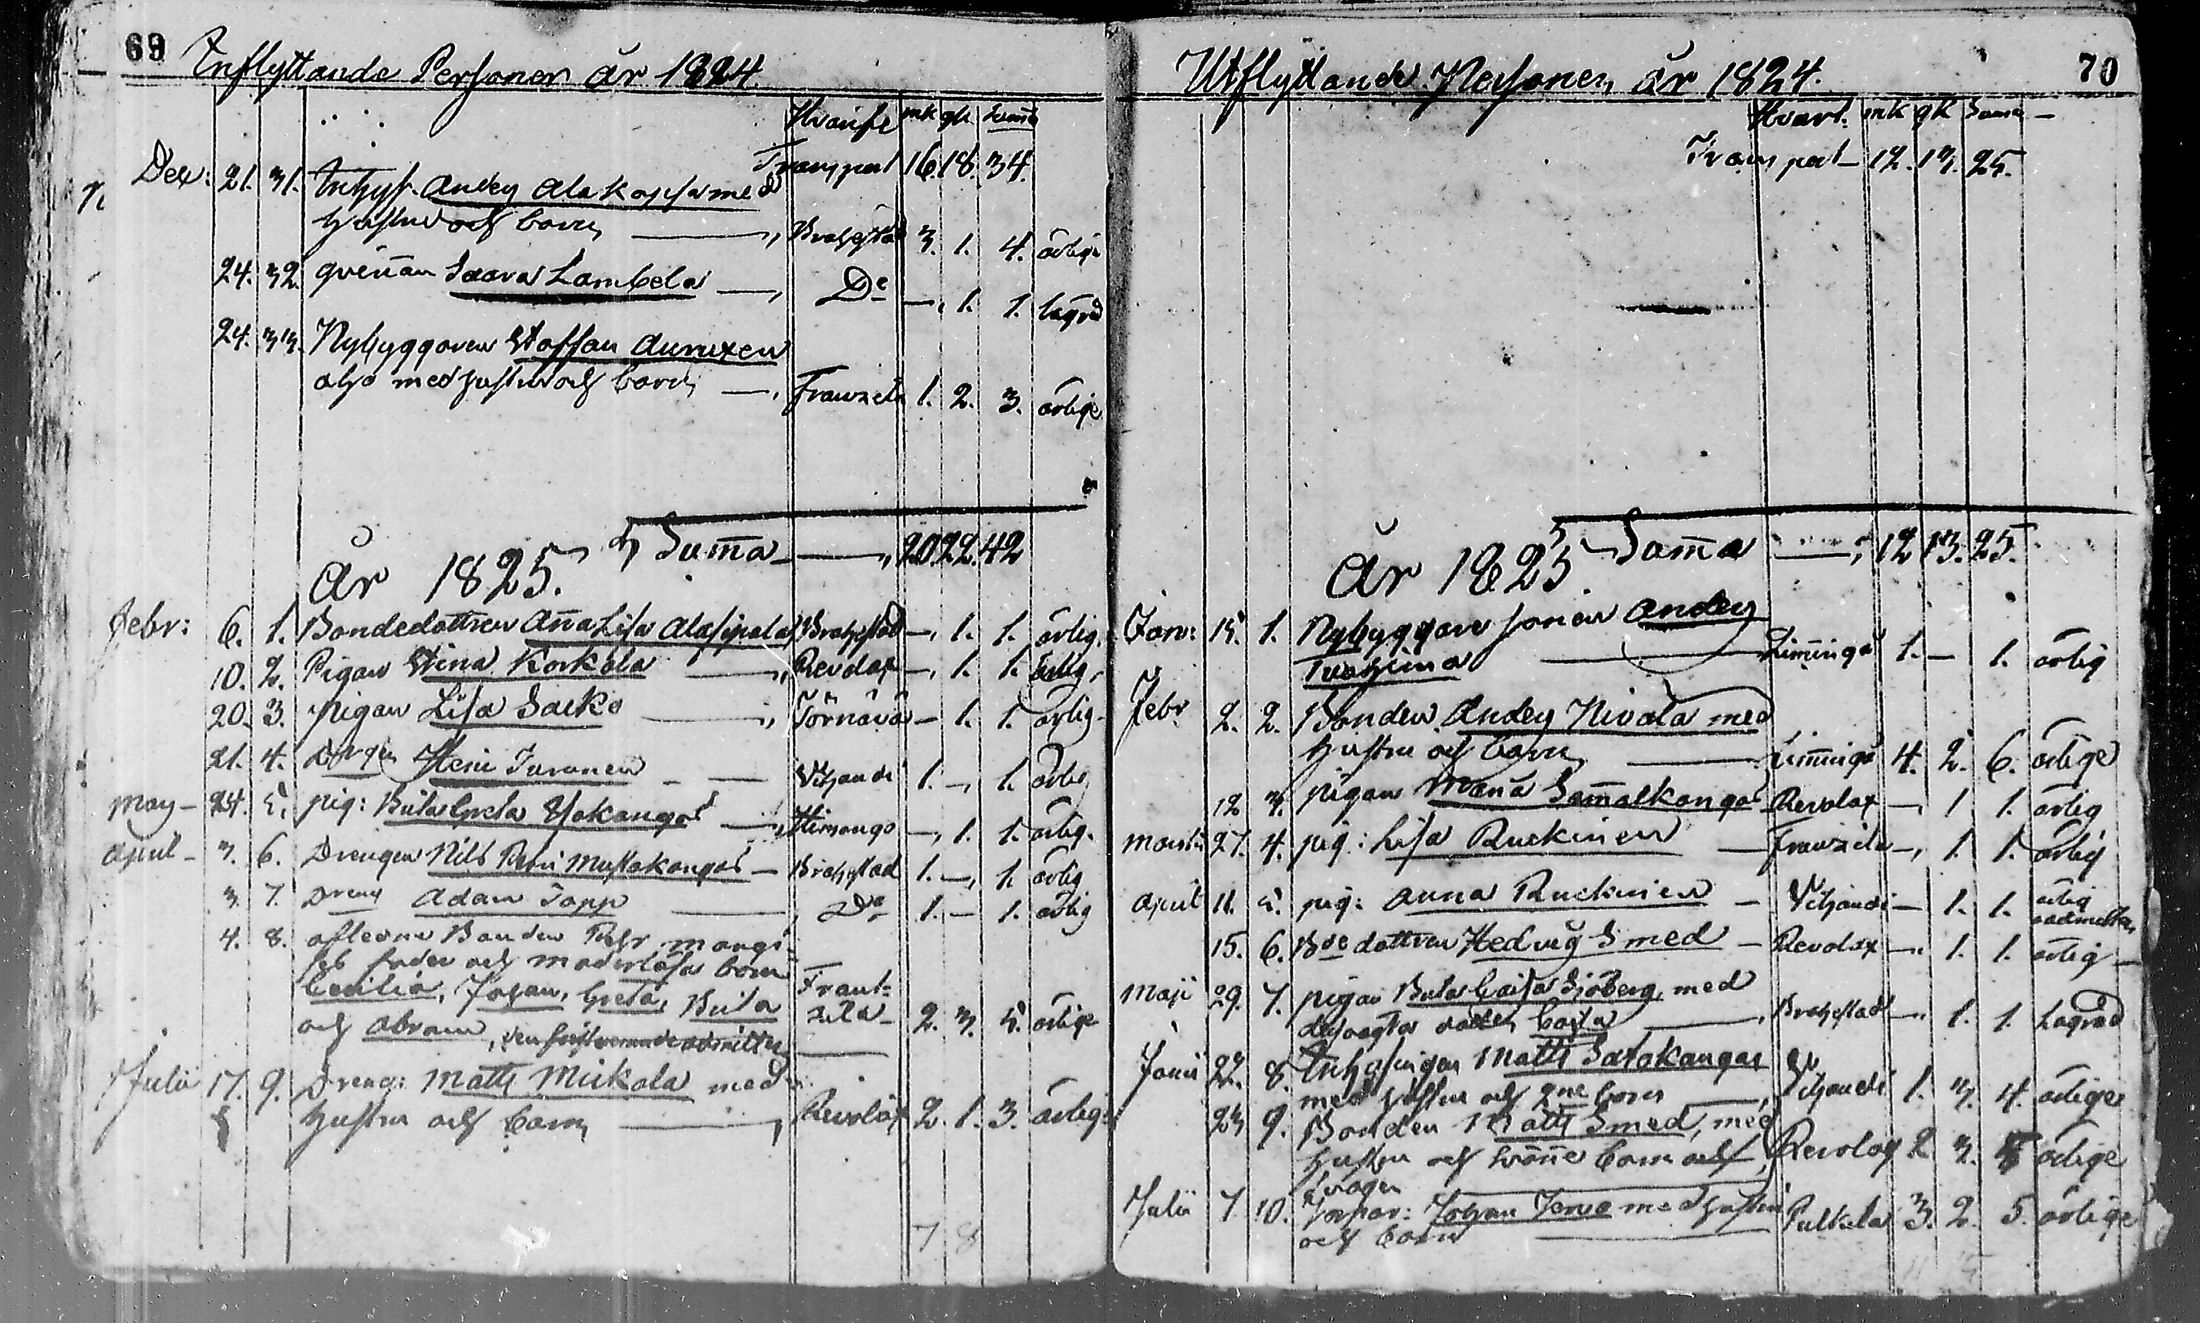 69 Inflyttande Personer år 1824.
Hvarifr. mk qk. Summa
Transport 16. 18. 34.
Dec: 21. 31. Inhys. Anders Alakopsa med
hustru och barn —, Brahestad 3. 1. 4. ärlige
24. 32. qvinnan Saara Lambela —, Do —, 1. 1. lagvd
24. 33. Nybyggaren Staffan
med hustru och barn —, Frantzila 1. 2. 3. ärlige
Summa —, 20 22. 42
År 1825.
Febr: 6. 1. Bondedottren Anna Lisa Alasipola Brahestad —, 1. 1. ärlig.
10. 2. Pigan Stina Korkala —, Revolax —, 1. 1. ärlig,
20. 3. pigan Lisa Sarko —, Törnävä — 1. 1. ärlig
21. 4. Drengen Henr Juronen — Vihandi 1. —, 1. ärlig
May — 24. 5. pig: Brita Greta Ylikangas —, Himango —, 1. 1. ärlig.
April — 3. 6. Drengen Nils Petri Mustakangas — Brahestad 1. —, 1. ärlig
3. 7. Dreng Adam Topp —, Do 1. — 1. ärlig
4. 8. afledne Bonden Pehr
fader och moderlösa barn
Cecilia, Johan, Greta, Brita Frant-
och Abram, zila — 2. 3. 5. ärlige
Julii 17. 9. Dreng: Matts Mickola med
hustru och barn —, Revolax 2. 1. 3. ärlige
7 8
Utflyttande Personer år 1824. 70
Hvart. mk qk Summa —
Transport — 12. 13. 25.
Summa —, 12 13. 25.
År 1825
Janu: 15. 1. Nybyggare sonen Anders
Tuohima — Liminga 1. — 1. ärlig
Febr 2. 2. Bonden Anders Nivala med
hustru och barn — Liminga 4. 2. 6. ärlige
12 3. pigan Maria Sammalkangas Revolax —, 1 1. ärlig
Martii 27. 4. pig: Lisa Ruckinen — Frantzila —, 1. 1. ärlig
April 11. 5. pig: Anna Ruckinen — Vihandi — 1. 1. ärlig
15. 6. Bde dottren Hedvig Smed — Revolax —, 1. 1. ärlig —
Maji 29. 7. pigan Brita Caisa Sjöberg, med
Cajsa —, Brahestad —, 1. 1. Lagvd
Junii 22. 8. Inhysingen Matts Savokangas
med hustru och 2ne barn —, Vihandi 1. 3. 4. ärlige
23 9. Bonden Matts Smed, med
hustru och barn och Revolax 2 3. 5 ärlige
Julii 7. 10. Torpar: Johan Jervo med hustru
och barn — Pulkila 3. 2. 5. ärlige